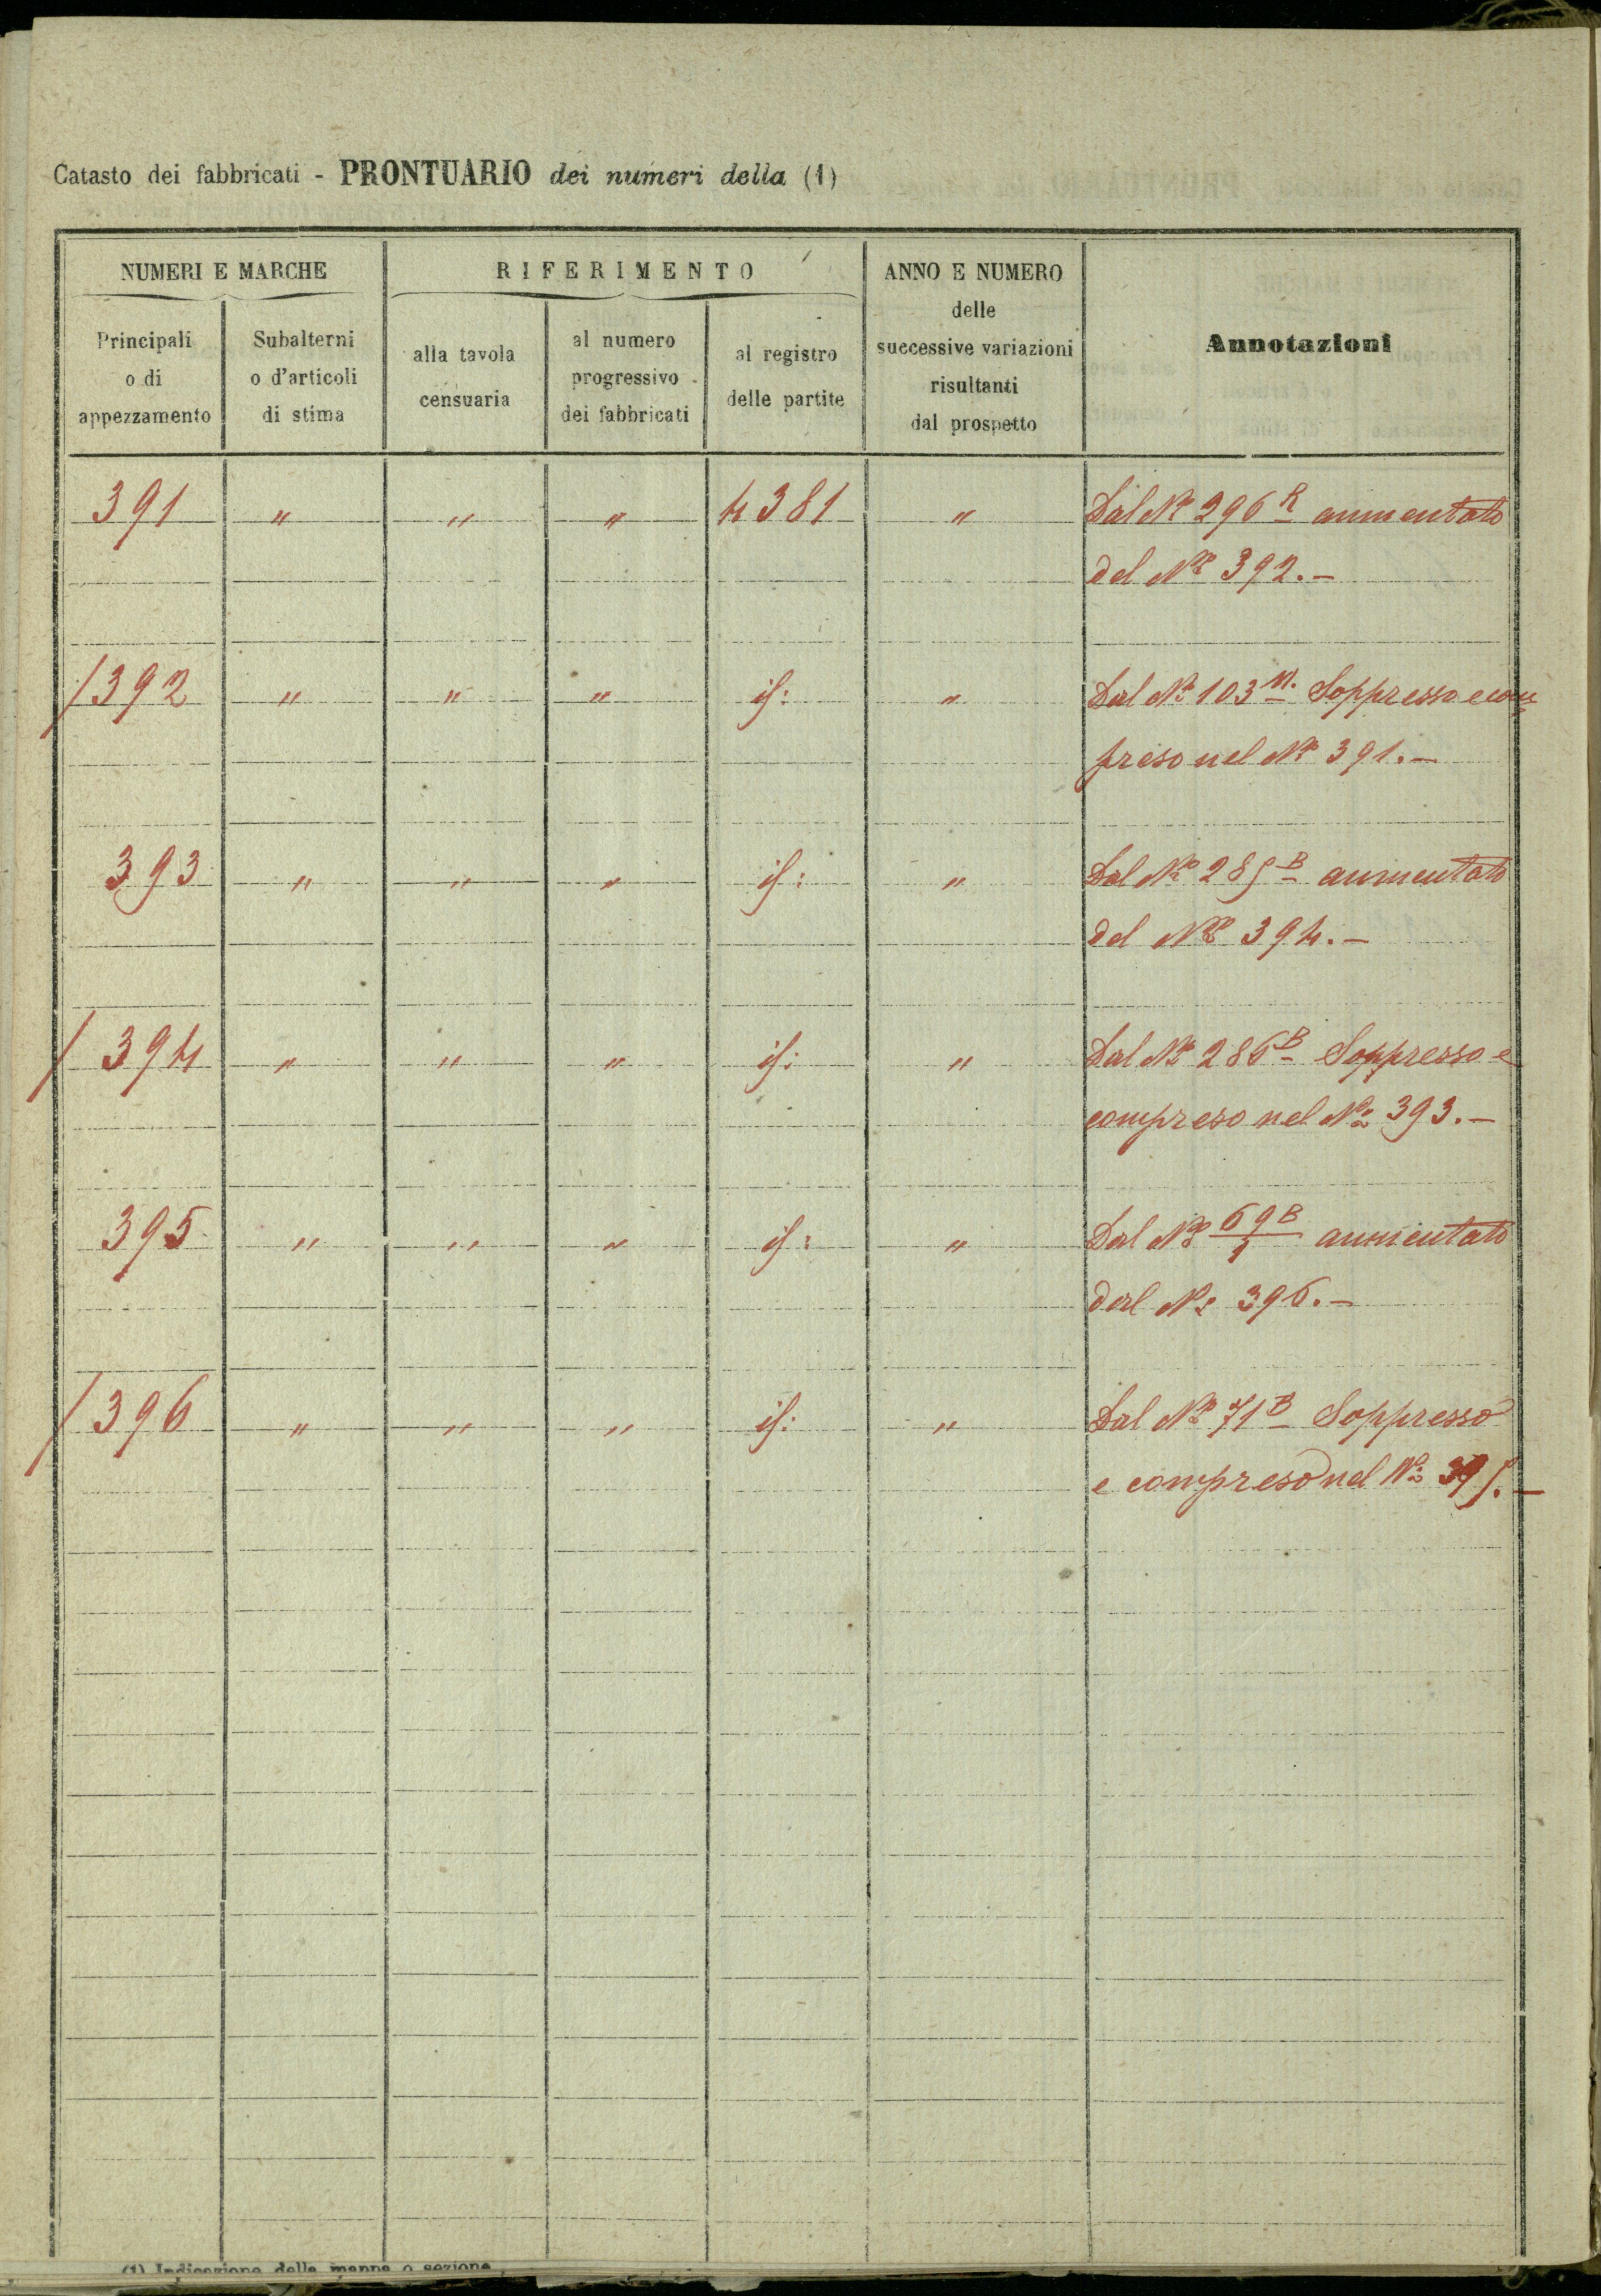 Catasto dei fabbricati - PRONTUARIO dei numeri della (1)
NUMERI E MARCHE
RIFERIMENTO
ANNO E NUMERO
delle
successive variazioni
risultanti
dal prospetto
Annotazioni
Principali
o di
appezzamento
Subalterni
o d'articoli
di stima
alla tavola
censuaria
al numero
progressivo
dei fabbricati
al registro
delle partite
391 " " " 4381 " Dal No 296 R aumentato
del No 392.-
/392 " " " if: " Dal No 103 M. Soppresso e com
preso nel No 391.-
393 " " " if: " Dal No 285 B aumentato
del No 394.-
/ 394 " " " if: " Dal No 286 B Soppresso e
compreso nel No 393.-
395 " " " if: " Dal No 69B/1 aumentato
dal No 396.-
/ 396 " " " if: " Dal No 71 B Soppresso
e compreso nel No 395.-
(1) Indicazione della mappa o sezione